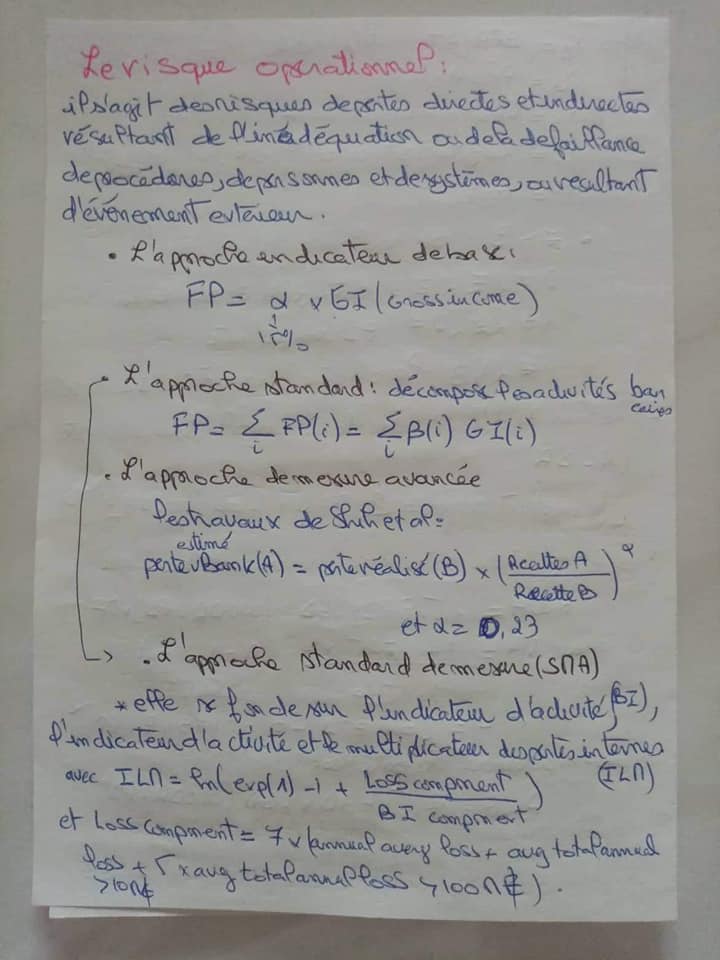 Le risque opérationnel :
il s'agit des risques de pertes directes et indirectes
résultant de l'inadéquation ou de la defaillance
de procédures, de personnes et de systèmes, ou resultant
d'événement extérieur.
• L'approche indicateur de base :
FP = α x GI (Gross income)
15%
• L'approche standard : décompose les activités ban
caires
FP = Σ FP(i) = Σ β(i) GI(i)
i i
• L'approche de mesure avancée
les travaux de Shih et al =
estimé
perte Bank(A) = perte réalisé (B) x (Recettes A / Recette B)^α
et α = 0,23
→ • L'approche standard de mesure (SMA)
* elle se fonde sur l'indicateur d'activité (BI),
l'indicateur d'activité et le multiplicateur des pertes internes
(ILM)
avec ILM = ln(exp(1) - 1 + Loss compment / BI compment)
et Loss compment = 7 x (annual avery loss + avg total annual
loss + 5 x avg total annual loss > 100M€).
>10M€